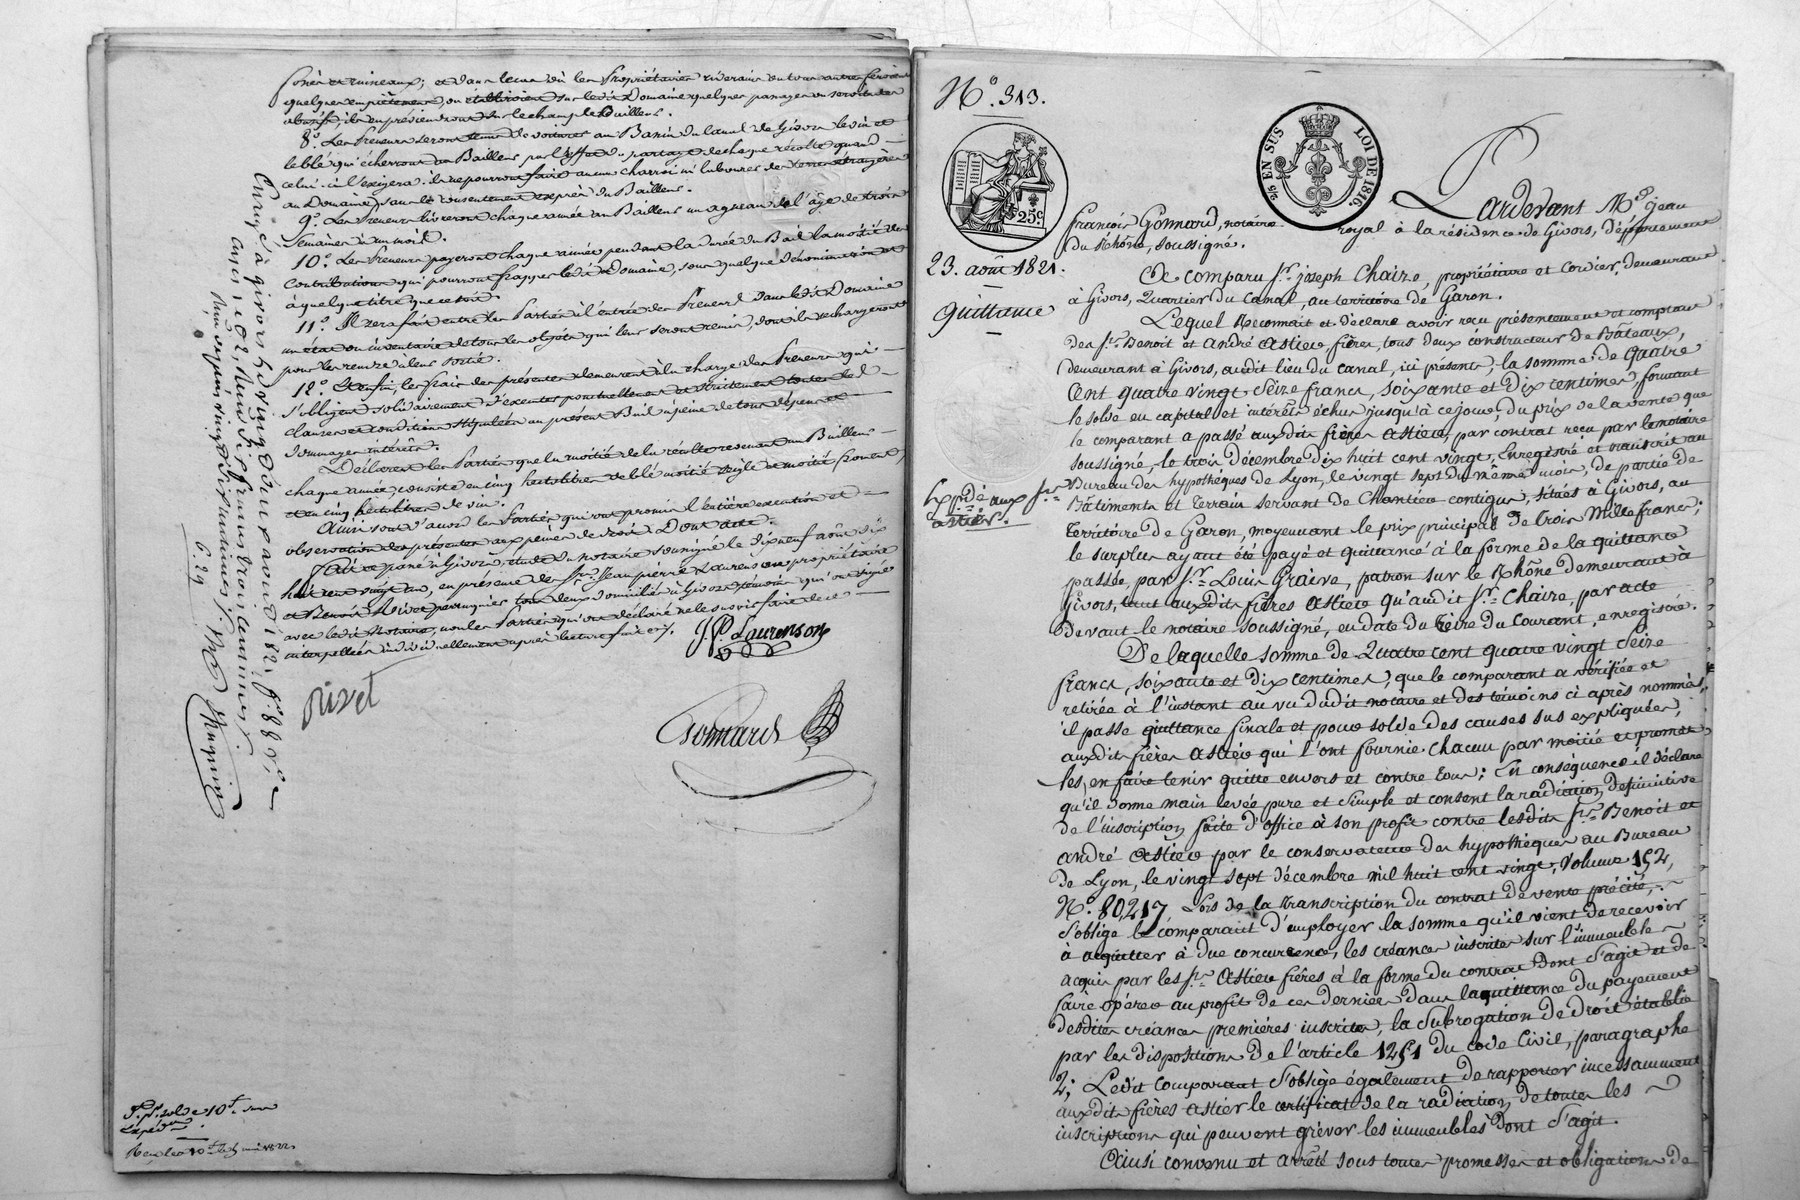 fossés et ruisseaux; et dans le cas où les Propriétaires riverains ou tous autres feroient
quelques empiètemens, ou établiroient sur ledit Domaine quelques passages ou servitudes
abusifs, ils en préviendront sur le champ le Bailleur.
8.º Les Preneurs seront tenus de voiturer au Bassin du Canal de Givors le vin et
le blé qui écherront au Bailleur par l'effet du partage de chaque récolte quand
celui-ci l'exigera; ils ne pourront faire aucun charroi ni labourer des terres étrangères
au Domaine, sans le consentement exprès du Bailleur.
9.º Les Preneurs livreront chaque année au Bailleur un agneau de l'âge de trois
semaines à un mois.
10.º Les Preneurs payeront chaque année pendant la durée du Bail la moitié des
Contributions qui pourront frapper ledit Domaine, sous quelque dénomination et
à quelque titre que ce soit.
11.º Il sera fait entre les Parties à l'entrée des Preneurs dans ledit Domaine
un état ou inventaire de tous les objets qui leur seront remis, dont ils se chargeront
pour les rendre à leur sortie.
12.º Et enfin, les frais des présentes demeurent à la charge des Preneurs qui
s'obligent solidairement d'exécuter ponctuellement et strictement toutes les
clauses et conditions stipulées au présent Bail à peine de tous dépens et
dommages intérêts.
Déclarent les Parties que la moitié de la récolte revenant au Bailleur
chaque année, consiste en cinq hectolitres de blé moitié seigle et moitié froment,
et en cinq hectolitres de vin.
Ainsi sont d'accord les Parties qui ont promis l'entière exécution et
observation des présentes aux peines de droit. Dont acte.
Fait et passé à Givors, étude du notaire soussigné le dix neuf août dix
huit cent vingt un, en présence de Srs. Jean pierre Laurenson propriétaire
et Benoit Rivet perruquier tous deux domiciliés à Givors témoins qui ont signé
avec ledit Notaire, non les Parties qui ont déclaré ne le savoir faire de ce
interpellées individuellement après lecture faite.
J. P. Laurenson
Rivet
Gomard
Enreg.é à givors le vingt deux aout 1821 fº 88 vº
reçu
6.29
N.º 313.
25 c
23. août 1821.
Quittance
Exp.dié aux Srs
astier.
25 EN SUS
LOI DE 1816.
Pardevant Mes jean
françois Gomard, notaire royal à la résidence de Givors, département
du Rhône, soussigné.
A comparu Sr. joseph Chaize, propriétaire et Cordier, demeurant
à Givors, Quartier du Canal, au territoire de Garon.
Lequel reconnait et déclare avoir reçu présentement et comptant
des Srs. Benoit et André Astier frères, tous deux constructeurs de Bâteaux,
demeurant à Givors, audit lieu du canal, ici présents, la somme de Quatre
Cent quatre vingt seize francs, soixante et dix centimes, formant
le solde en capital et intérêts échus jusqu'à ce jour, du prix de la vente que
le comparant a passé auxdits frères Astier, par contrat reçu par le notaire
soussigné, le trois Décembre dix huit cent vingt, Enregistré et transcrit au
Bureau des hypothèques de Lyon, le vingt sept du même mois, de partie de
Bâtiments et terrain servant de Chantier contigus, situés à Givors, au
territoire de Garon, moyennant le prix principal de trois Mille francs;
le surplus ayant été payé et quittancé à la forme de la quittance
passée par Sr. Louis Graive, patron sur le Rhône demeurant à
Givors, tant auxdits frères Astier qu'audit Sr. Chaize, par acte
devant le notaire soussigné, en date du treize du courant, enregistré.
De laquelle somme de Quatre cent quatre vingt seize
francs, soixante et dix centimes, que le comparant a vérifiée et
retirée à l'instant au vu dudit notaire et des témoins ci après nommés,
il passe quittance finale et pour solde des causes sus expliquées,
auxdits frères Astier qui l'ont fournie chacun par moitié et promet
les en faire tenir quitte envers et contre tous; En conséquence il déclare
qu'il donne main levée pure et simple et consent la radiation définitive
de l'inscription faite d'office à son profit contre lesdits Srs. Benoit et
andré Astier par le conservateur des hypothèques au Bureau
de Lyon, le vingt sept décembre mil huit cent vingt, Volume 152,
Nº. 80,217, lors de la transcription du contrat de vente précité,
s'oblige le comparant d'employer la somme qu'il vient de recevoir
à acquitter à due concurrence, les créances inscrites sur l'immeuble
acquis par les Srs Astier frères à la forme du contrat dont s'agit et de
faire opérer au profit de ces derniers dans la quittance du payement
desdites créances premières inscrites, la subrogation de droit établie
par les dispositions de l'article 1251 du code Civil, paragraphe
2; Ledit Comparant s'oblige également de rapporter incessamment
auxdits frères Astier le certificat de la radiation de toutes les
inscriptions qui peuvent gréver les immeubles dont s'agit.
Ainsi convenu et arrêté sous toutes promesses et obligations de